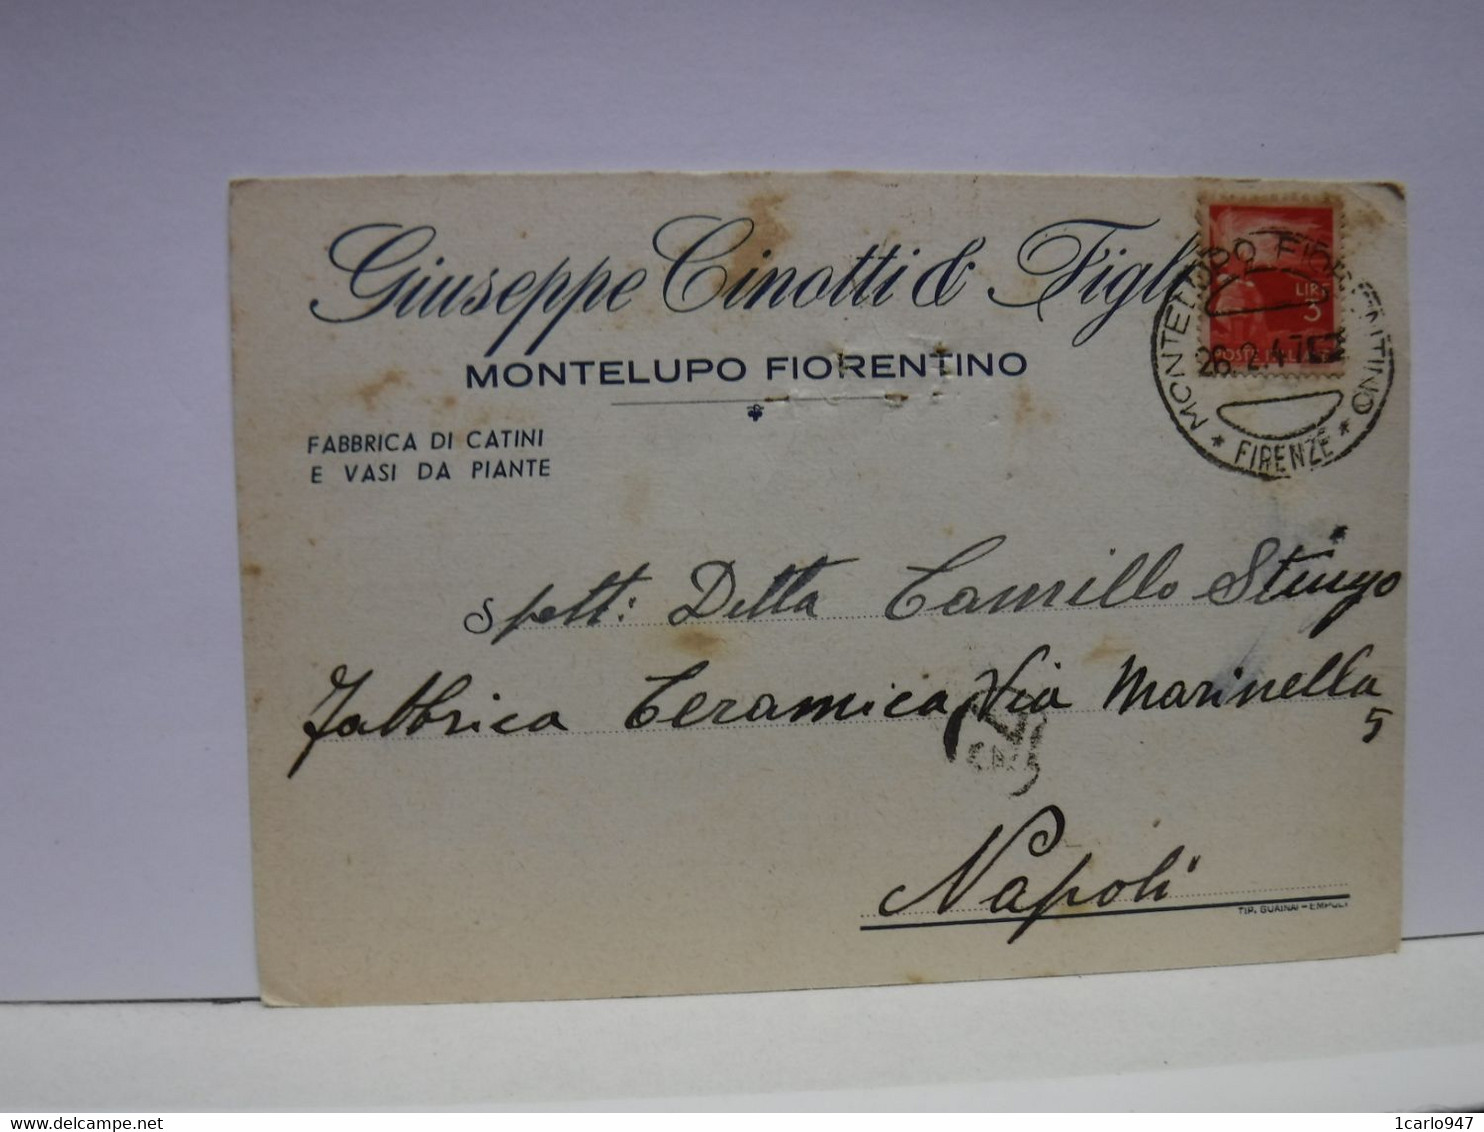 Giuseppe Cinotti & Figli
MONTELUPO FIORENTINO
FABBRICA DI CATINI
E VASI DA PIANTE
LIRE
3
POSTE ITALIANE
MONTELUPO FIORENTINO
26.2.47
* FIRENZE *
Spett: Ditta Camillo Stingo
Fabbrica Ceramica Via Marinella
5
Napoli
TIP. GUAINAI - EMPOLI
delcampe.net
1carlo947